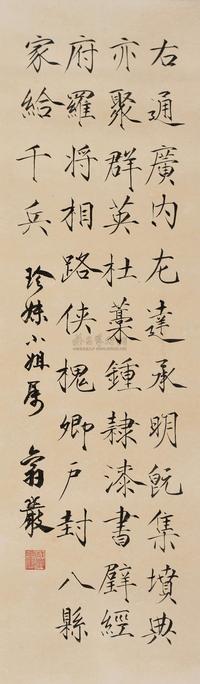 右通廣内左達承明既集墳典
亦聚群英杜藁鍾隸漆書壁經
府羅將相路俠槐卿户封八縣
家給千兵
珍妹小姐属 翁嚴